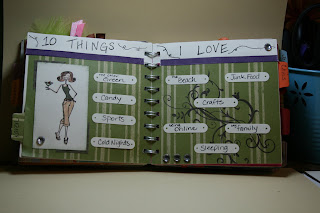 10 THINGS I LOVE
the color
Green
Candy
Sports
Cold Nights
the
Beach
Junk Food
Crafts
Online
my
family
Sleeping